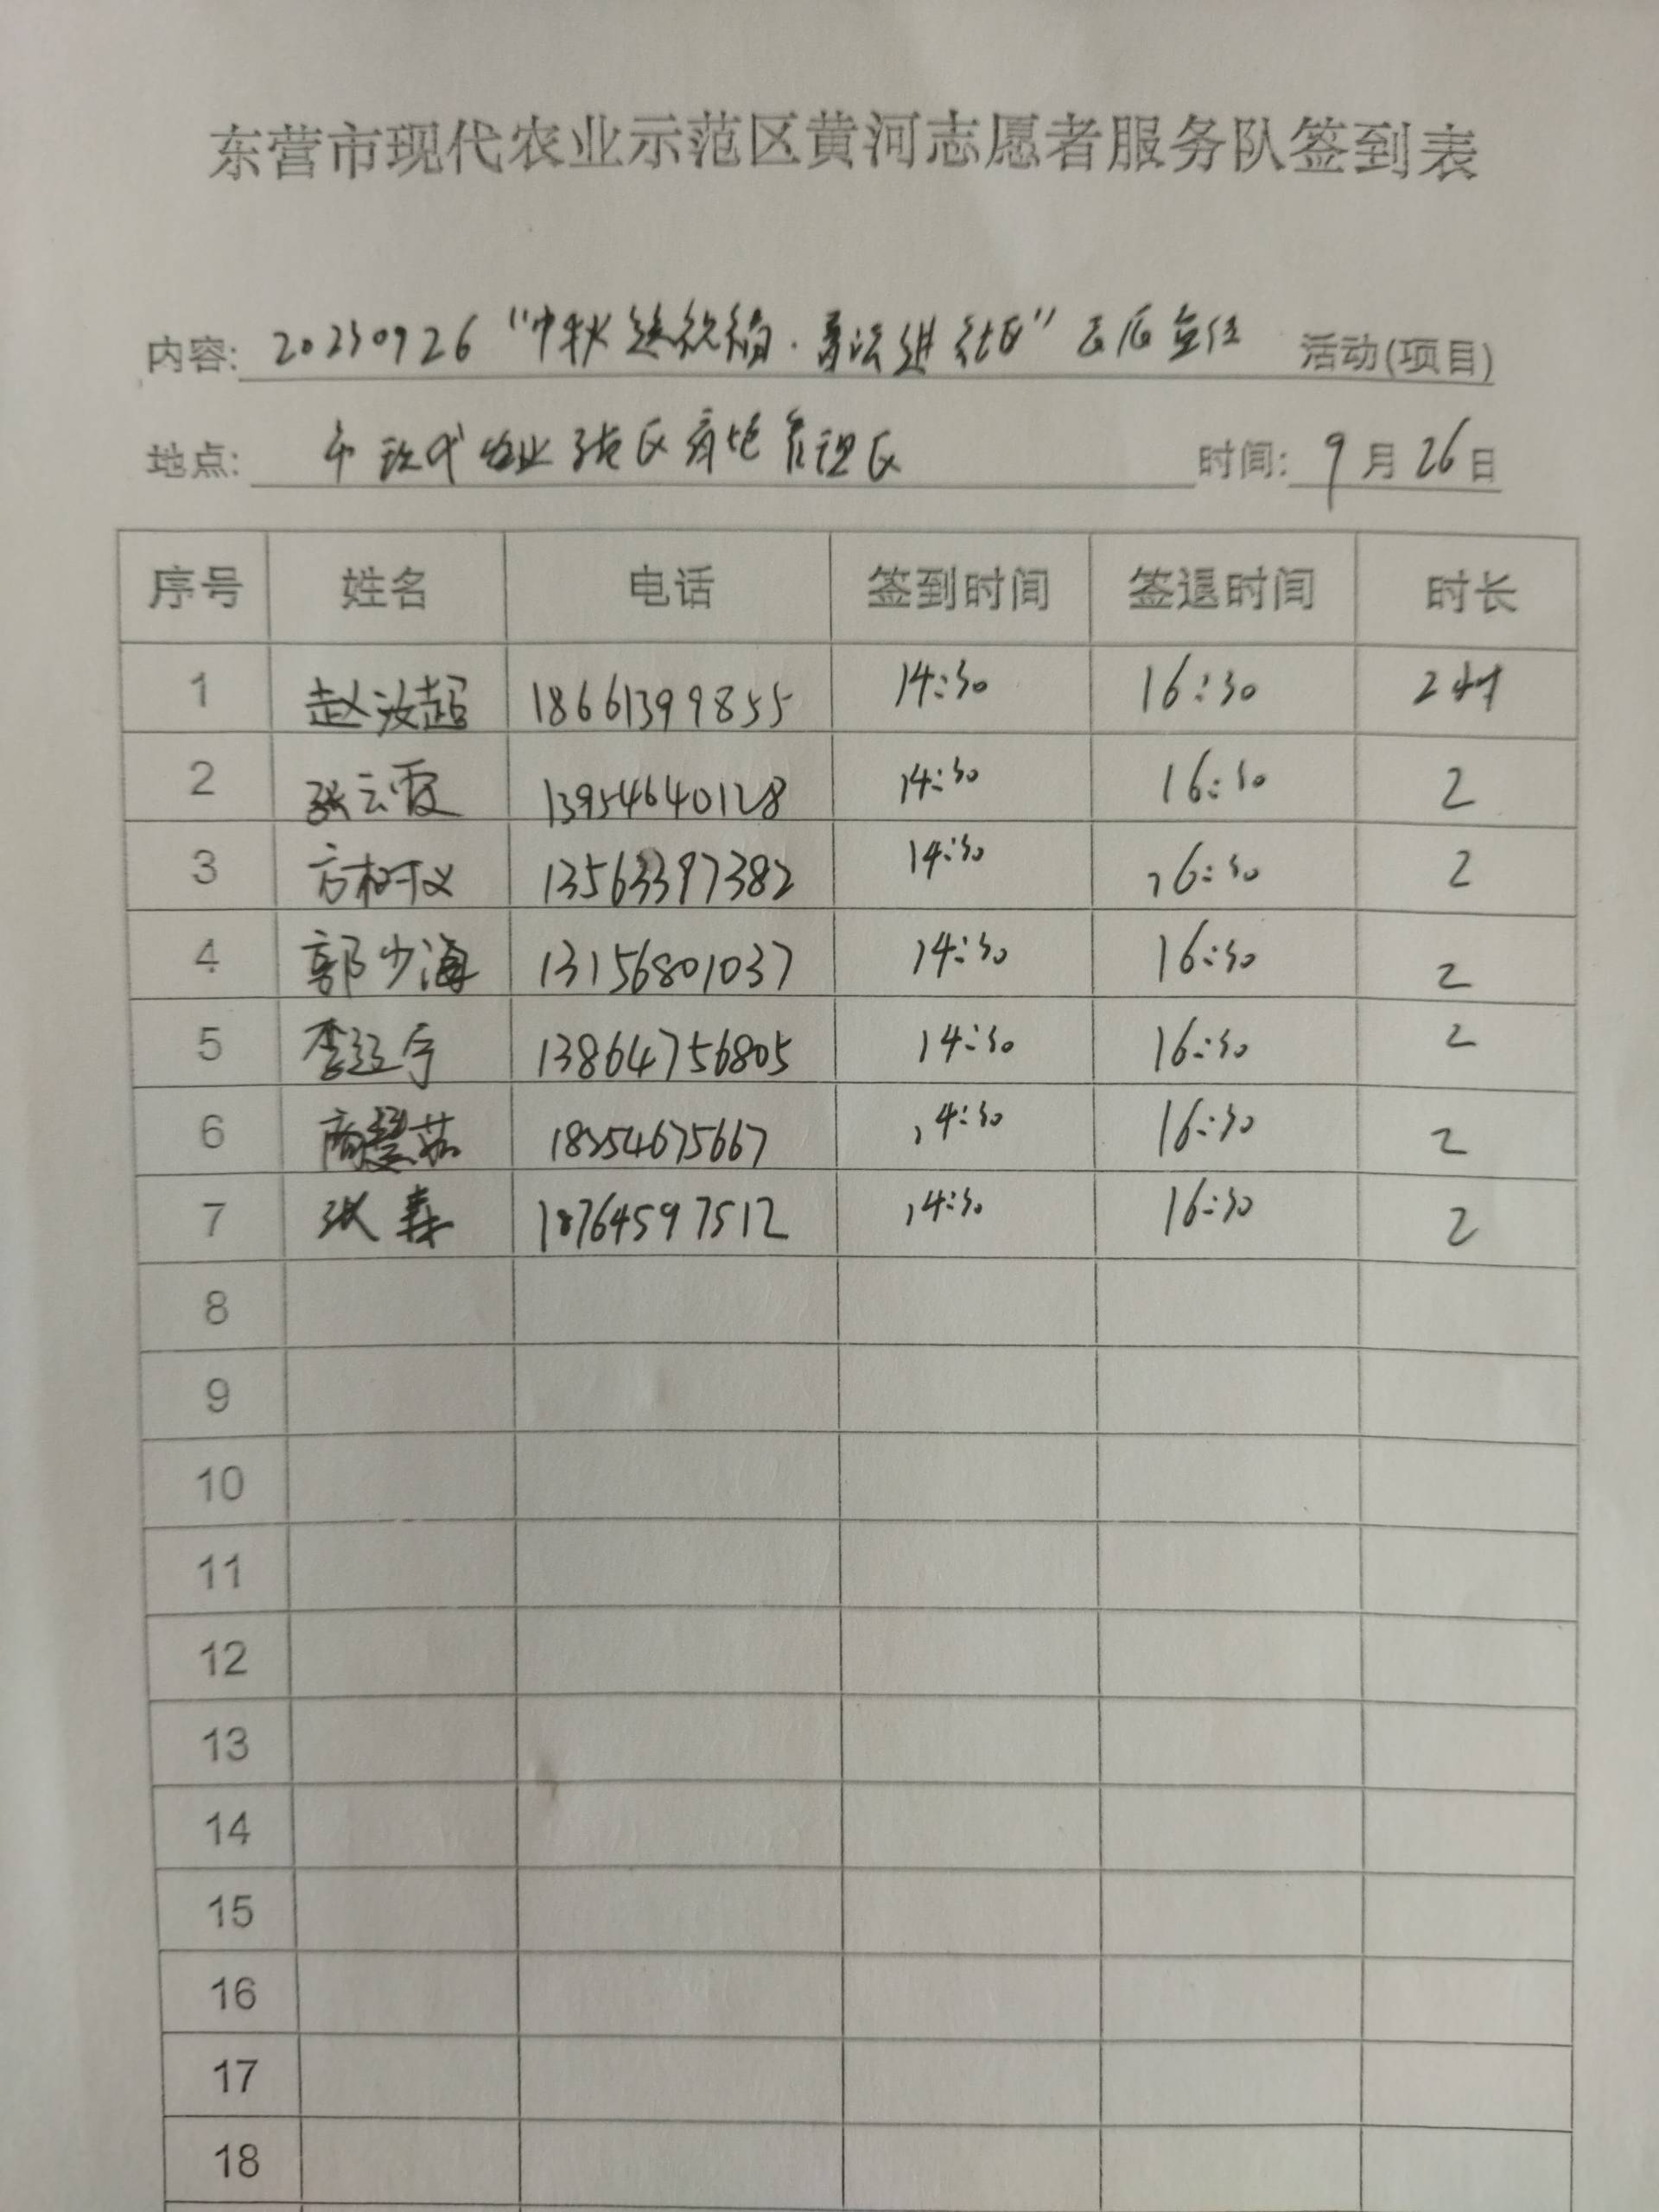 东营市现代农业示范区黄河志愿者服务队签到表
内容: 20230926 "中秋送祝福·普法进社区" 活动(项目)
地点: 市现代农业示范区 管理区 时间: 9月26日
序号 姓名 电话 签到时间 签退时间 时长
1 赵汝超 18661399855 14:30 16:30 2小时
2 张云霞 13954640128 14:30 16:30 2
3 方树义 13563397382 14:30 16:30 2
4 郭少海 13156801037 14:30 16:30 2
5 李 宁 13864756805 14:30 16:30 2
6 商慧茹 18354675667 14:30 16:30 2
7 张森 18764597512 14:30 16:30 2
8
9
10
11
12
13
14
15
16
17
18